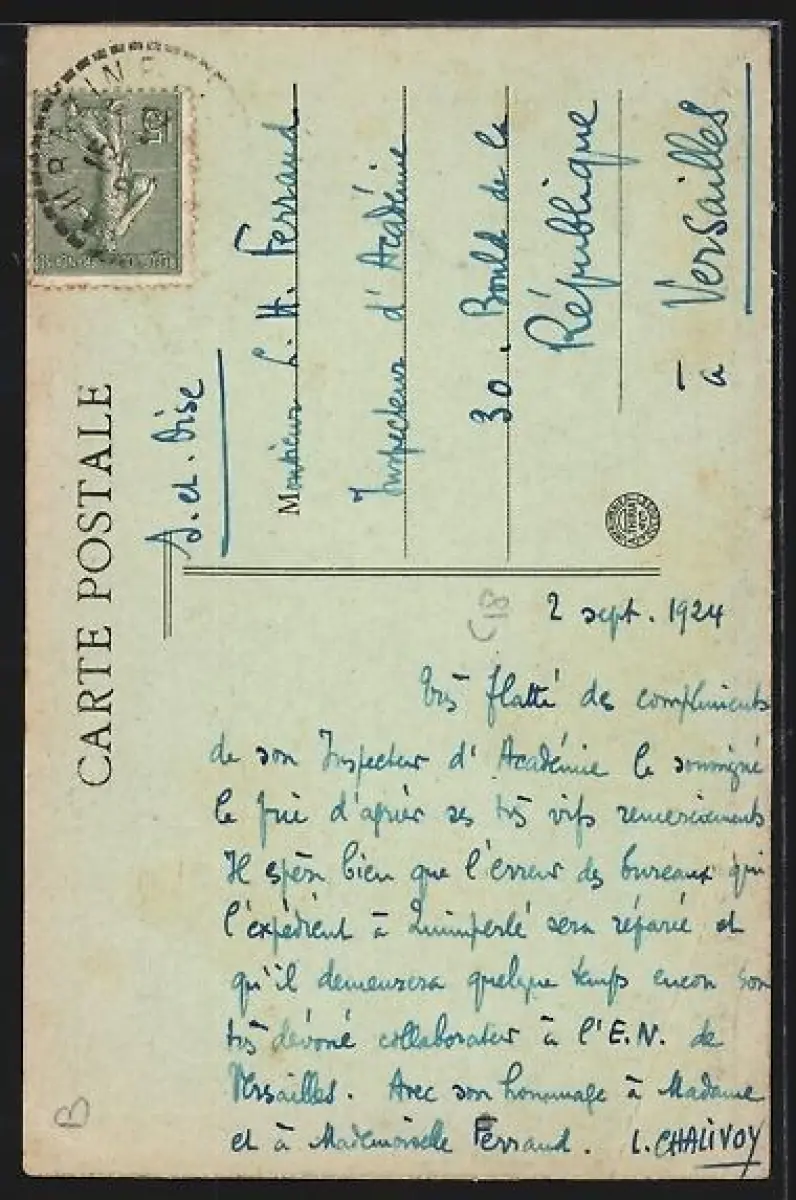 CARTE POSTALE
Monsieur L. H. Ferrand
Inspecteur d'Académie
30. Bould de la
République
à Versailles
S. et. Oise
2 sept. 1924
Très flatté des compliments
de son Inspecteur d'Académie le soussigné
le prie d'agréer ses très vifs remerciements
Il espère bien que l'erreur des bureaux qui
l'expédient à Quimperlé sera réparée et
qu'il demeurera quelque temps encore son
très dévoué collaborateur à l'E.N. de
Versailles. Avec son hommage à Madame
et à Mademoiselle Ferrand. L. CHALIVOY
B